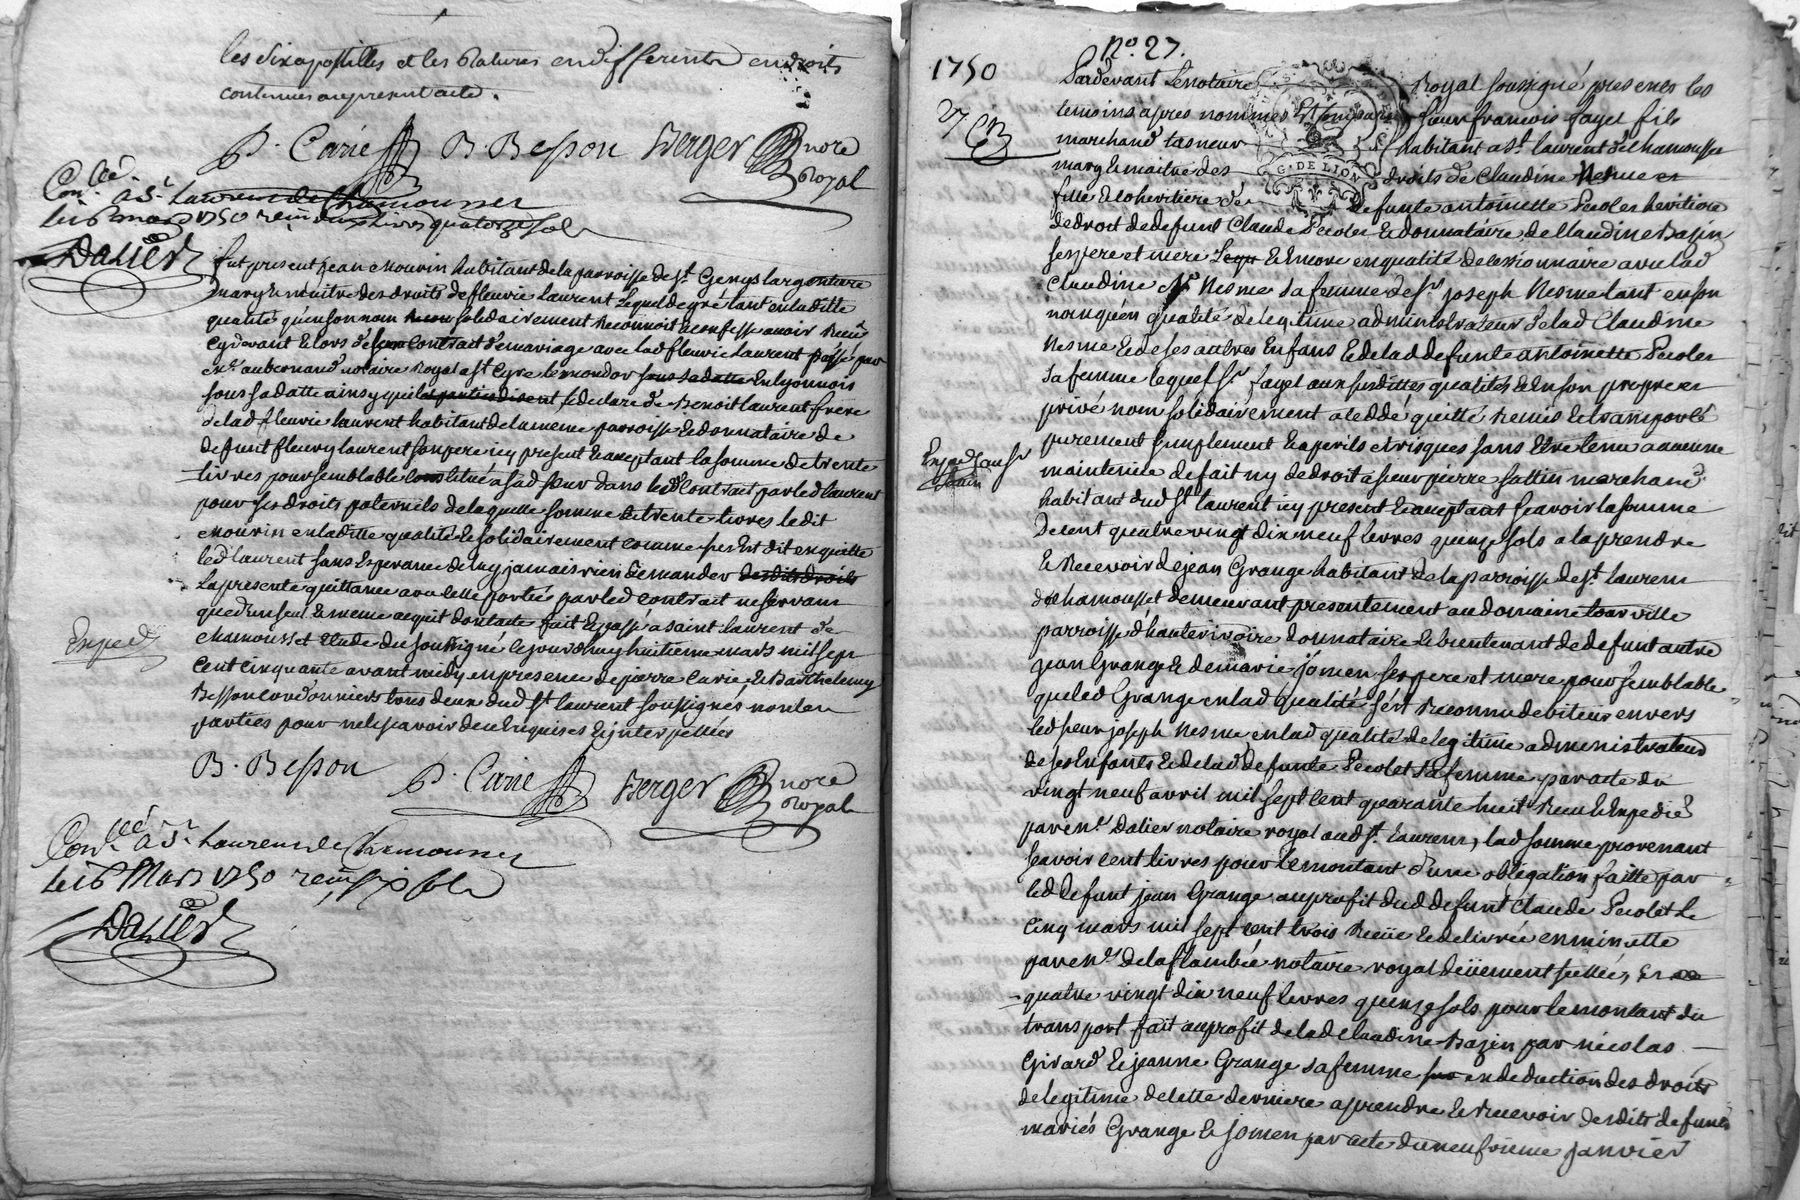 les dix apostilles et les Ratures en differents endroits
contenues au present acte.
P. Carie B. Besson Berger nore
Royal
Con.lé a St Laurent de Chamousset
le 16 mars 1750 reçu livres quatorze sols
Dalier
fut present jean Mourin habitant de la parroisse de St. Genys largentiere
mary & maitre des droits de fleurie Laurent Lequel de gré tant en laditte
qualité qu'en son nom solidairement Reconnoit & confesse avoir Receu
cy devant & lors de son contrat de mariage avec lad fleurie Laurent passé par
Me. aubernand notaire Royal a St. Cyre le sous sa datte En lyonnois
sous sa datte ainsy qu'il les parties disent & declare de Benoit laurent frere
de lad fleurie laurent habitant de la meme parroisse & donnataire de
defunt fleury laurent son pere icy present & acceptant la somme de trente
livres pour semblable constituée a sad sœur dans led Contrat par led laurent
pour ses droits paternels de laquelle somme de trente livres ledit
Mourin en laditte qualité & solidairement comme sus Est dit en quitte
led laurent sans Esperance de luy jamais rien demander desdits droits
La presente quittance avec celle portée par led contrat ne servant
que d'un seul & meme acquit dont acte fait & passé a saint laurent de
Exped
chamousset Etude du soussigné le jourd'huy huitieme mars mil sept
cent cinquante avant midy en presence de pierre Carie, & Barthelemy
Besson cordonniers tous deux dud St laurent soussignés non les
parties pour ne le scavoir de ce Enquises & interpellées
B. Besson P. Carie Berger nore
Royal
Con.lé a St Laurent de Chamousset
le 16 Mars 1750 reçu six sols
Dalier
No. 27.
1750
27
Pardevant Le notaire Royal soussigné presents les
temoins apres nommés Est comparu sieur francois fayet fils
marchand tanneur habitant a St. laurent de chamousset
G. DE LION
mary & maitre des droits de Claudine Nesme
fille & coheritiere de defunte antoinette Pecolet heritiere
de droit de defunt Claude Pecolet & donnataire de Claudine Bazin
ses pere et mere & Encore en qualité de cessionnaire avec lad
Claudine Nesme sa femme de Sr. joseph Nesme tant en son
nom qu'en qualité de legitime administrateur de lad Claudine
Nesme & de ses autres Enfans & de lad defunte antoinette Pecolet
sa femme lequel Sr. fayet aux susdittes qualités & En son propre et
privé nom solidairement a ceddé quitté Remis & transporté
purement simplement & a perils et risques sans Etre tenu a aucune
maintenue de fait ny de droit a sieur pierre sattin marchand
habitant dud St. laurent icy present & acceptant scavoir la somme
de cent quatre vingt dix neuf livres quinze sols a la prendre
& Recevoir de jean Grange habitant de la parroisse de St. laurent
de chamousset demeurant presentement au domaine
parroisse d'hauterivoire donnataire & bientenant de defunt autre
jean Grange & de marie jomen ses pere et mere pour semblable
que led Grange en lad qualité s'est Reconnu debiteur envers
led sieur joseph Nesme en lad qualité de legitime administrateur
de ses Enfants & de lad defunte Pecolet sa femme par acte du
vingt neuf avril mil sept cent quarante huit Receu & Expedié
par Me. Dalier notaire royal aud St. laurent, lad somme provenant
scavoir cent livres pour le montant d'une obligation faitte par
led defunt jean Grange au profit dud defunt Claude Pecolet le
cinq mars mil sept cent trois Receüe & delivrée en minutte
par Me. Delaflambée notaire royal düement scellée, Et
quatre vingt dix neuf livres quinze sols pour le montant du
transport fait au profit de lad Claudine Bazin par nicolas
Girard & jeanne Grange sa femme en deduction des droits
de legitime de cette derniere a prendre & Recevoir desdits defunts
mariés Grange & jomen par acte du neufvieme janvier